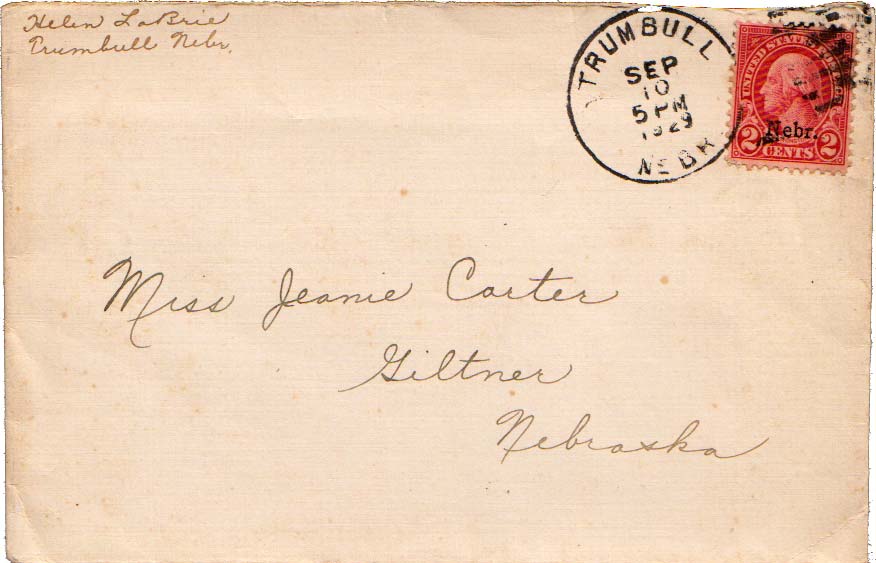 Helen LaBrie
Trumbull Nebr.
TRUMBULL
SEP
10
5 PM
1929
NEBR
UNITED STATES POSTAGE
Nebr.
2 CENTS 2
Miss Jeanie Carter
Giltner
Nebraska